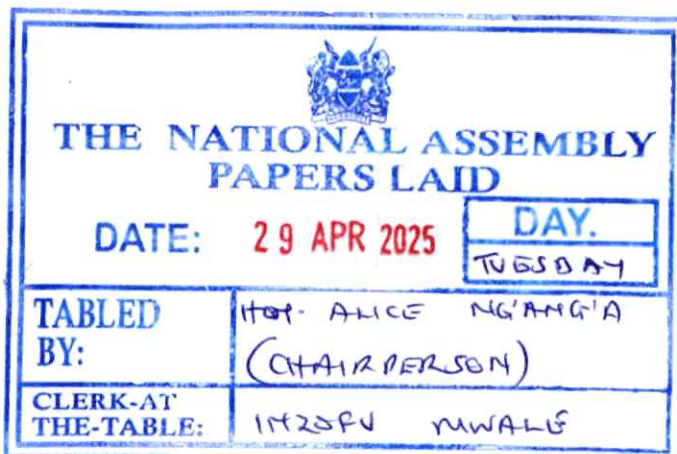 THE NATIONAL ASSEMBLY
PAPERS LAID
DATE: 29 APR 2025
DAY.
TUESDAY
TABLED BY:
HON. ALICE NG'ANG'A
(CHAIRPERSON)
CLERK-AT
THE-TABLE:
MWALE